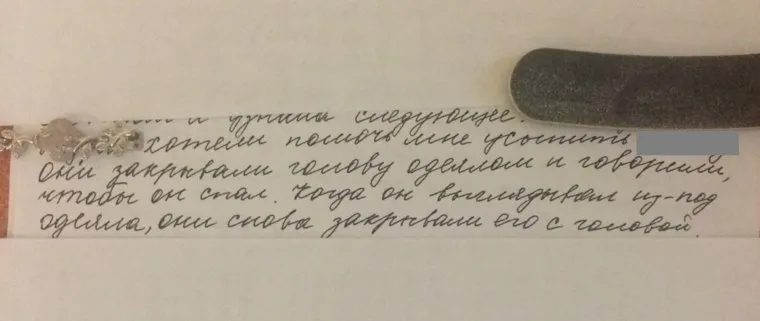 и узнала следующее.
хотели помочь мне усыпить
они закрывали голову одеялом и говорили,
чтобы он спал. Когда он выглядывал из-под
одеяла, они снова закрывали его с головой.